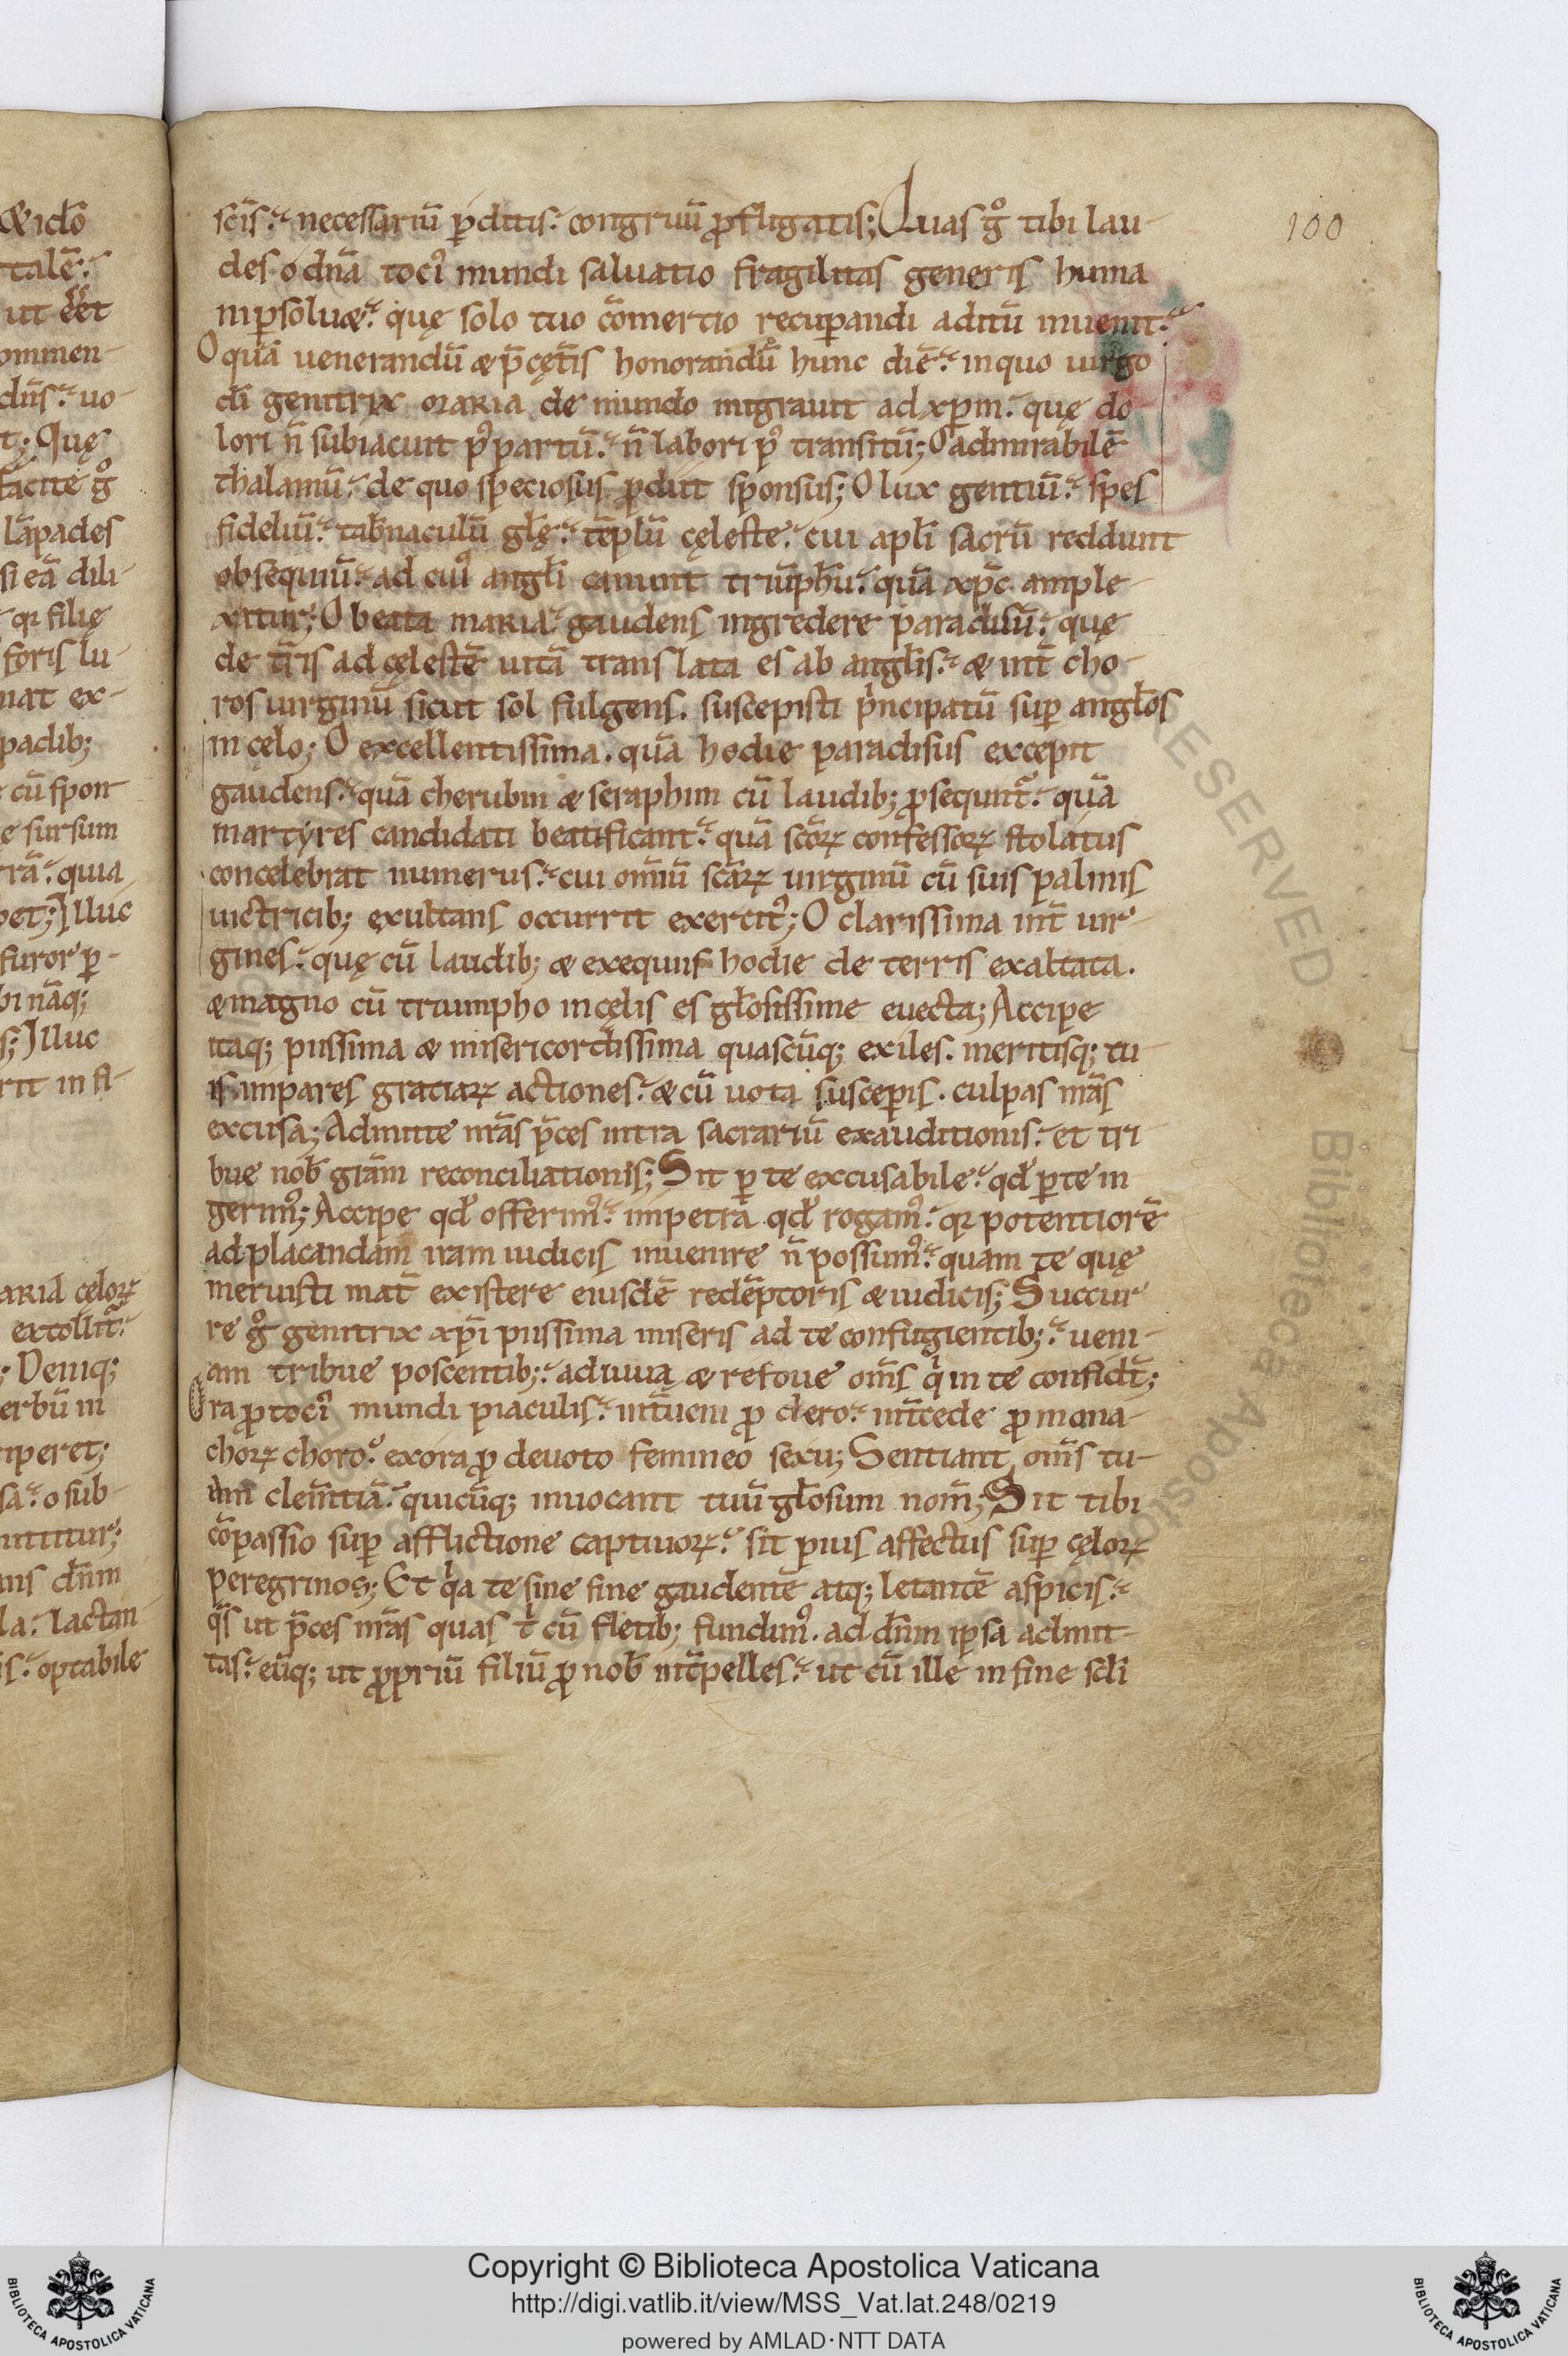 100
scīs. necessariū ꝑditis. congruū ꝓfligatis; Quas gͦ tibi lau-
des o dnā toci᷒ mundi saluatio fragilitas generis huma
ni ꝑsoluæ. quę solo tuo cōmertio recuꝑandi aditū inuenit.
O quā uenerandū & p̄cęt̄is honorandū hunc diē. in quo uirgo
dī genitrix maria de mundo migrauit ad xp̄m. quę do
lori n̄ subiacuit p᷒ partū. n̄ labori p᷒ transitū; O admirabilē
thalamū. de quo speciosus ꝓdiit sponsus; O lux gentiū. spes
fideliū. tab̄naculū gl̄ę. tēplū cęleste. cui apl̄i sacrū reddunt
obsequiū. ad cui᷒ angl̄i canunt triūphū. quā xp̄c ample-
xatur; O beata maria gaudens ingredere paradisū. quę
de t̄ris ad cęlestē uitā translata es ab angl̄is. & int̄ cho-
ros uirginū sicut sol fulgens. suscepisti pͥncipatū suꝑ angl̄os
in cęlo; O excellentissima. quā hodie paradisus excepit
gaudens. quā cherubin & seraphim cū laudib; ꝓsequnt᷒. quā
martyres candidati beatificant. quā scōꝝ confessoꝝ stolatus
concelebrat numerus. cui omīū scāꝝ uirginū cū suis palmis
uictricib; exultans occurrit exercit᷒; O clarissima int̄ uir-
gines. quę cū laudib; & exequiis hodie de terris exaltata.
& magno cū triumpho in cęlis es gl̄osissime euecta; Accipe
itaq; piissima & misericordissima quascūq; exiles. meritisq; tu-
is impares gratiaꝝ actiones. & cū uota susceꝑis. culpas nr̄as
excusa; Admitte nr̄as p̄ces intra sacrariū exauditionis. et tri-
bue nob̄ gr̄am reconciliationis; Sit ꝑ te excusabile. qd̄ ꝑ te in
gerim᷒; Accipe qd̄ offerim᷒. impetra qd̄ rogam᷒. qꝛ potentiorē
ad placandam iram iudicis inuenire n̄ possum᷒. quam te quę
meruisti mat̄ existere eiusdē redēptoris & iudicis; Succur
re gͦ genitrix xp̄i piissima miseris ad te confugientib;. ueni-
am tribue poscentib;. adiuua & refoue om̄s qͥ in te confidt̄;
Ora ꝓ toci᷒ mundi piaculis. int̄ueni ꝓ clero. int̄cede ꝓ mona-
choꝝ choro. exora ꝓ deuoto femineo sexu; Sentiant om̄s tu-
am clem̄tiā. quicūq; inuocant tuū gl̄osum nom̄; Sit tibi
cōpassio suꝑ afflictione captiuoꝝ. sit pius affectus suꝑ cęloꝝ
peregrinos; Et qͥa te sine fine gaudentē atq; letantē aspicis.
qs̄ ut p̄ces nr̄as quas tͥ cū fletib; fundim᷒. ad dn̄m ipsa admit-
tas. eūq; ut ꝓpriū filiū ꝓ nob̄ int̄pelles. ut cū ille in fine sc̄li
Copyright © Biblioteca Apostolica Vaticana
http://digi.vatlib.it/view/MSS_Vat.lat.248/0219
powered by AMLAD·NTT DATA